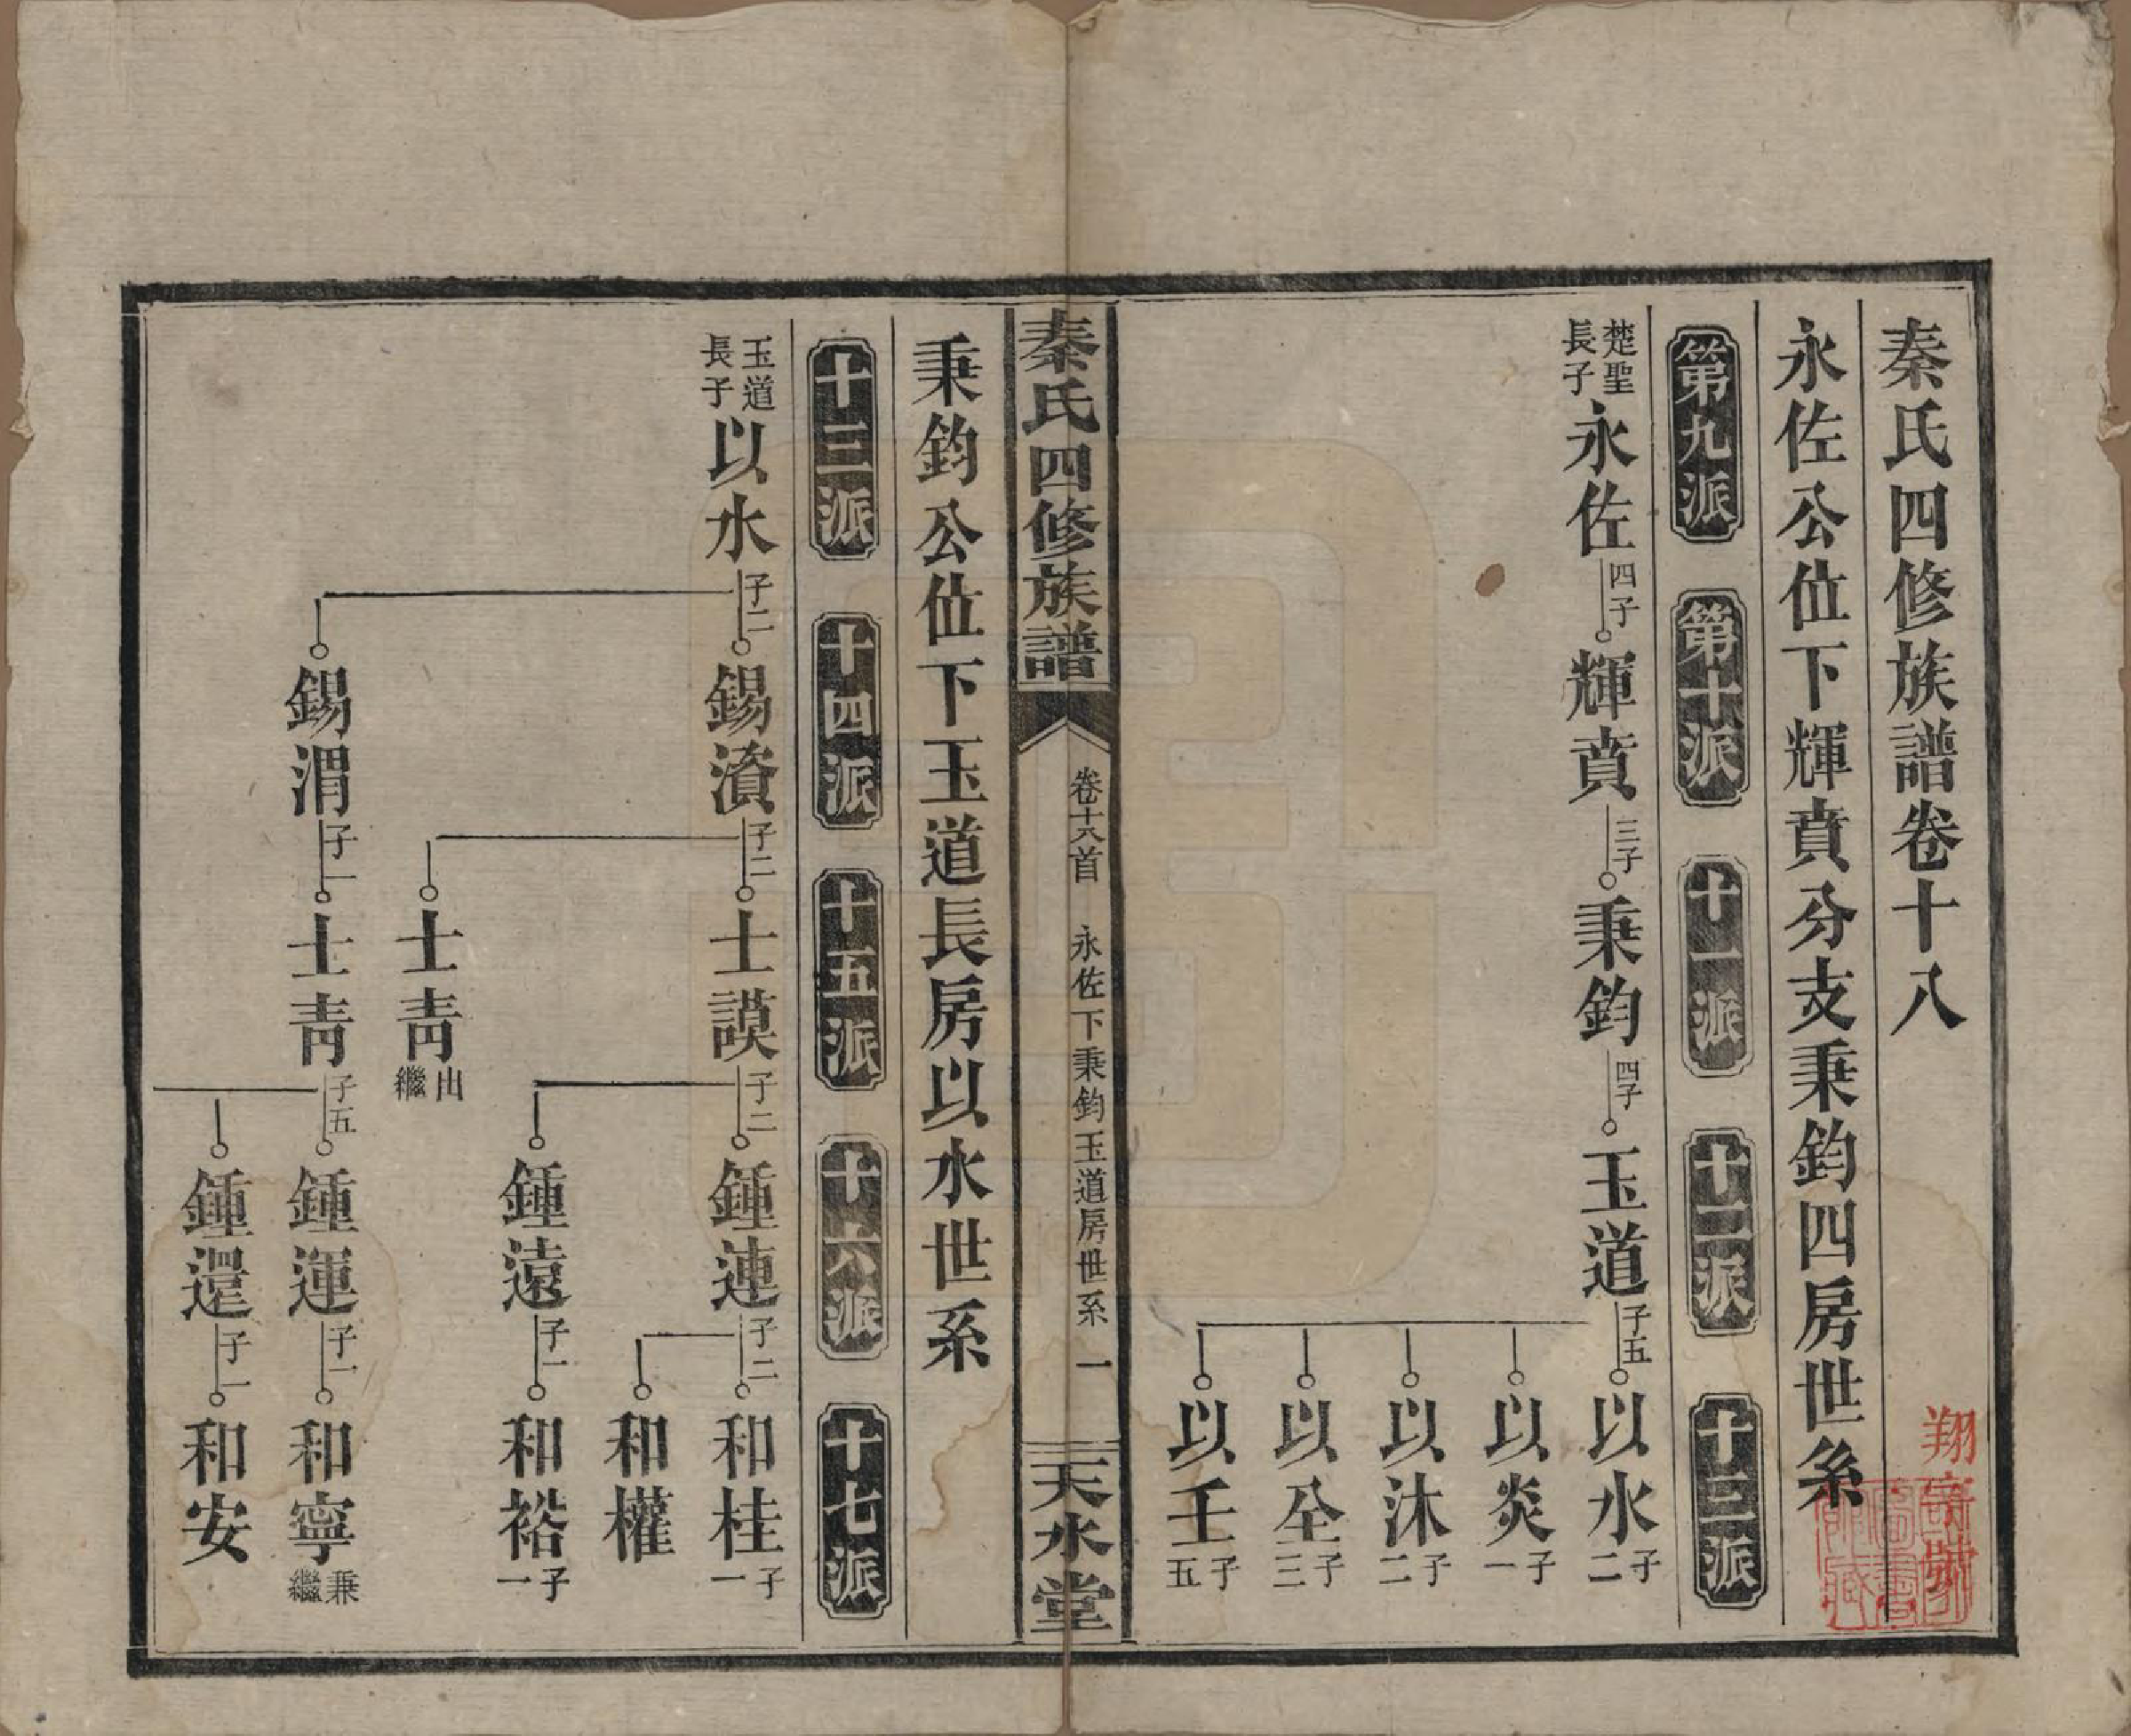 秦氏四修族譜卷十八
永佐公位下輝賁分支秉鈞四房世系
第九派 第十派 十一派 十二派 十三派
楚聖
長子
永佐 四子 輝賁 三子 秉鈞 四子 玉道 子五 以水 子二
以炎 子一
以沐 子二
以㘴 子三
以壬 子五
秦氏四修族譜 卷十八首 永佐下秉鈞玉道房世系 一 天水堂
秉鈞公位下玉道長房以水世系
十三派 十四派 十五派 十六派 十七派
玉道
長子
以水 子二 錫濱 子二 士謨 子二 鍾連 子二 和桂 子一
和權
鍾遠 子一 和裕 子一
士青 出繼
錫渭 子一 士青 子五 鍾運 子一 和寧 兼繼
鍾還 子一 和安